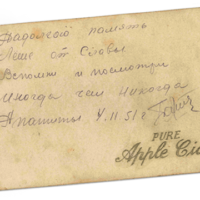 На долгую память
Леше от Славы
Вспомни и посмотри
Иногда чем никогда
Апатиты 4.11.51г
PURE
Apple Ci